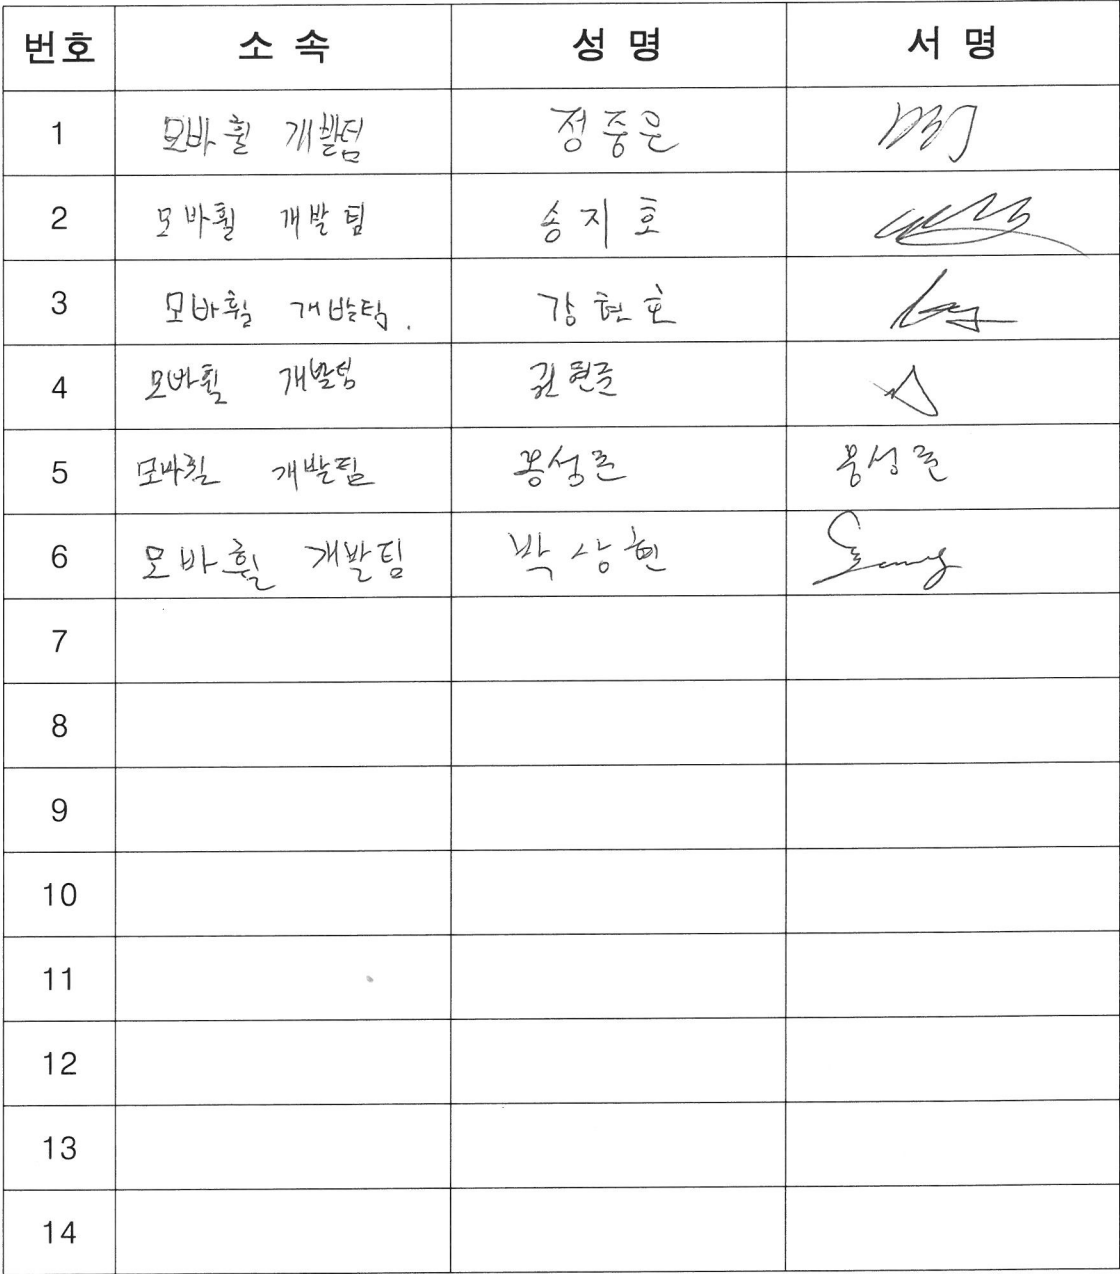 번호 소 속 성 명 서 명
1 모바휠 개발팀 정중은
2 모바휠 개발팀 송지호
3 모바휠 개발팀. 강현호
4 모바휠 개발팀
5 모바휠 개발팀
6 모바휠 개발팀 박상현
7
8
9
10
11
12
13
14